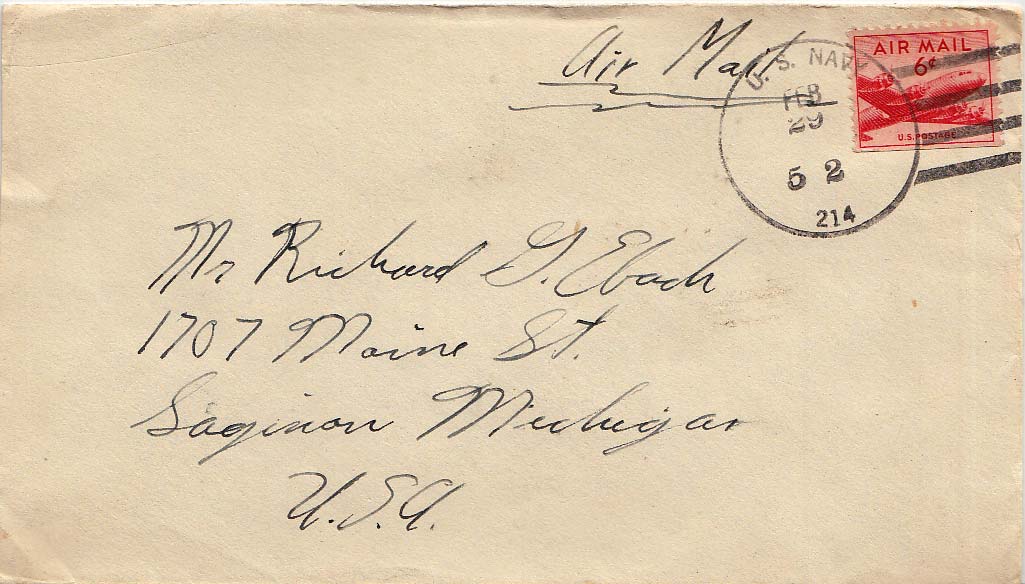 Air Mail
U. S. NAVY
FEB
29
5 2
214
AIR MAIL
6¢
U.S. POSTAGE
Mr Richard G. Ebach
1707 Maine St.
Saginaw Michigan
U.S.A.